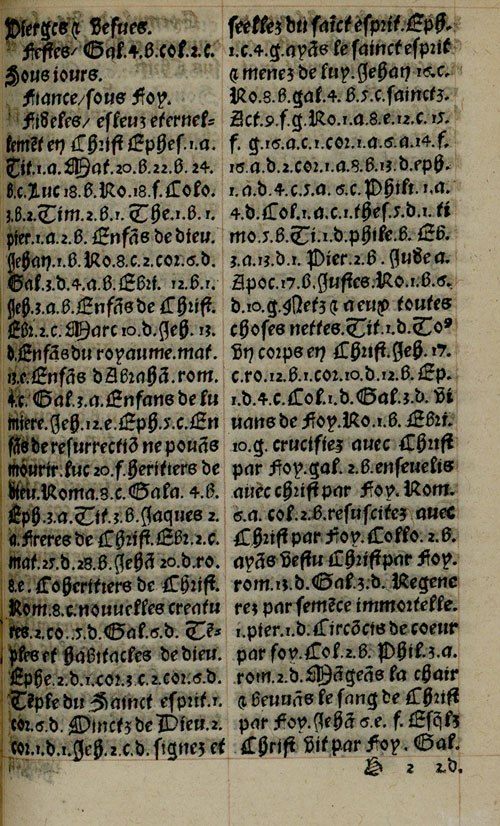 Vierges ⁊ Vefues.
Festes/ Gal.4.b.col.2.c.
Sous iours.
Fiance/sous Foy.
Fideles/ esleuz eternel-
lemēt en Christ Ephes.1.a.
Tit.1.a. Mat.20.b.22.b.24.
b.c. Luc 18.b. Ro.18.f. Colo.
3.b.2. Tim.2.b.1. The.1.b.1.
pier.1.a.2.b. Enfās de dieu.
Jehan.1.b. Ro.8.c.2.cor.6.d.
Gal.3.d.4.a.b. Ebri. 12.b.1.
Jeh.3.a.b. Enfās de Christ.
Ebr.2.c. Marc 10.d. Jeh. 13.
d. Enfās du royaume. mat.
13.c. Enfās dAbrahā. rom.
4.c. Gal.3.a. Enfans de lu
miere. Jeh.12.e. Eph.5.c. En
fās de resurrectiō ne pouās
mourir. luc 20.f. heritiers de
dieu. Roma.8.c. Gala. 4.b.
Eph.3.a. Tit.3.b. Jaques 2.
a. Freres de Christ. Ebr.2.c.
mat.25.d.28.b. Jehā 20.d. ro.
8.e. Coheritiers de Christ.
Rom.8.c. nouuelles creatu
res.2.co..5.d. Gal.6.d. Tē-
ples et habitacles de dieu.
Ephe.2.d.1.cor.3.c.2.cor.6.d.
Tēple du Sainct esprit.1.
cor.6.d. Oinctz de Dieu.2.
cor.1.d.1. Jeh.2.c.d. signez et
seellez du saīct esprit. Eph.
1.c.4.g. ayās le sainct esprit
⁊ menez de luy. Jehan 16.c.
Ro.8.b. gal.4.b.5.c. sainctz.
Act.9.f.g. Ro.1.a.8.e.12.c.15.
f. g.16.a.c.1.cor.1.a.6.a.14.f.
16.a.d.2.cor.1.a.8.b.13.d. eph.
1.a.d.4.c.5.a. 6.c. Phil1. 1.a.
4.d. Col.1.a.c.1. thes.5.d.1. ti
mo.5.b. Ti.1.d. phile.b. Eb.
3.a.13.d.1. Pier.2.b. Jude a.
Apoc.17.b. Justes. Ro.1.b.6.
d.10.g. Netz ⁊ a eux toutes
choses nettes. Tit.1.d. Toꝰ
vn corps en Christ. Jeh. 17.
c. ro.12.b.1.cor.10.d.12.b. Ep.
1.d.4.c. Col.1.d. Gal.3.d. vi
uans de Foy. Ro.1.b. Ebri.
10.g. crucifiez auec Christ
par Foy. gal. 2.b. enseuelis
auec christ par Foy. Rom.
6.a. col.2.b. resuscitez auec
Christ par Foy. Collo. 2.b.
ayās vestu Christ par Foy.
rom.13.d. Gal.3.d. Regene
rez par semēce immortelle.
1.pier.1.d. Circōcis de coeur
par foy. Col.2.b. Phil.3.a.
rom.2.d. Māgeās la chair
⁊ beuuās le sang de Christ
par Foy. Jehā 6.e. f. Esq̄lz
Christ vit par Foy. Gal.
2 2.d.